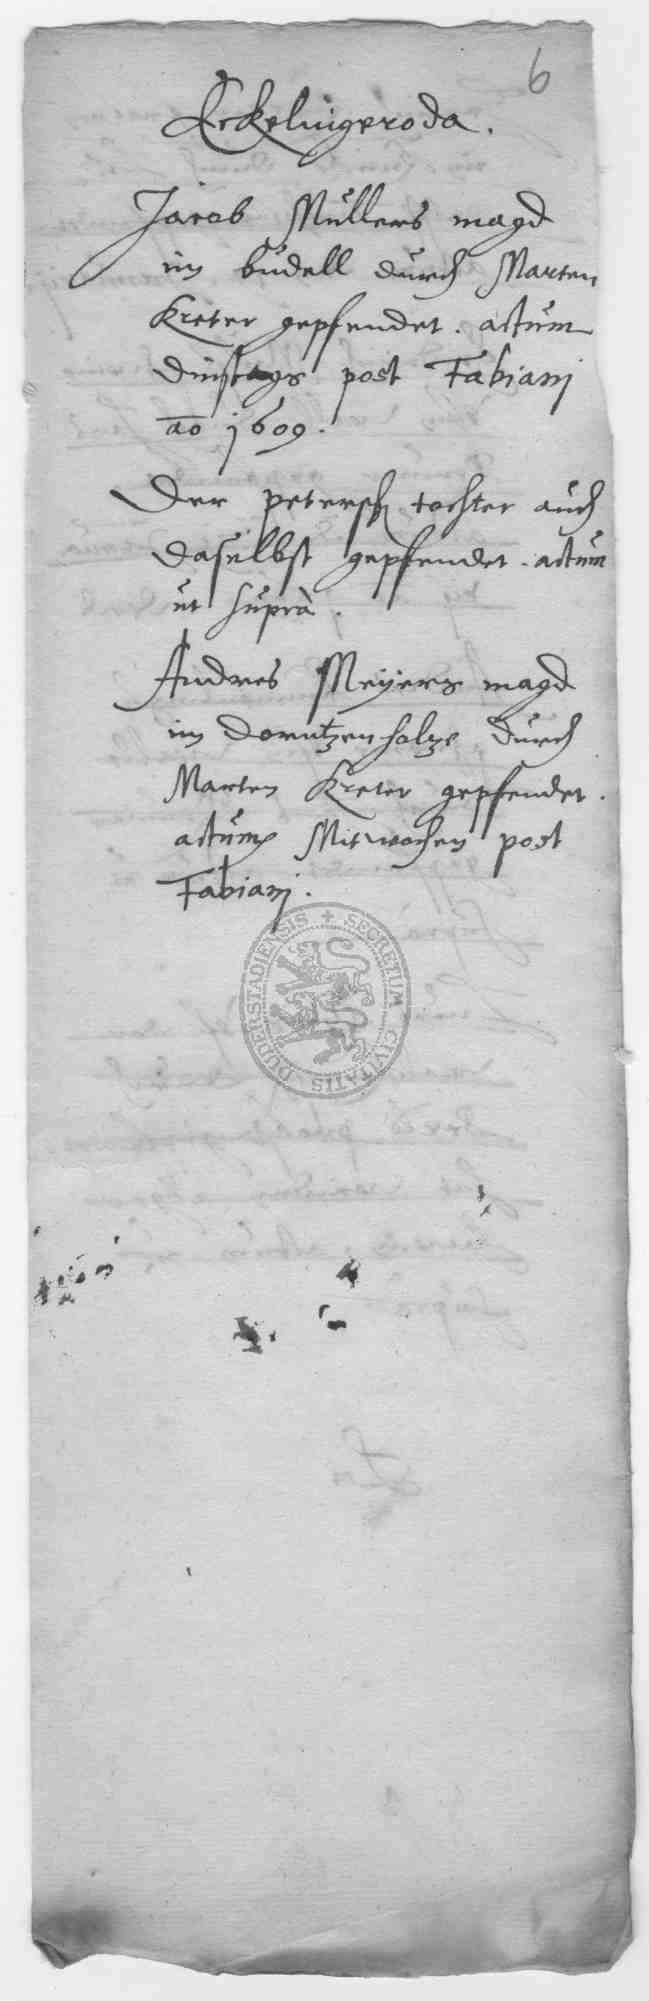 6
Eckelingeroda.
Jacob Müllers magd
im büdell durch Marten
Kreter gepfendet. actum
dinstags post Fabianj
ao 1609.
Der petersch tochter auch
daselbst gepfendet. actum
ut suprà.
Andres Meÿers magd
im dorntzenholtze durch
Marten Kreter gepfendet.
actum Mitwochen post
Fabianj.
SECRETUM CIVITATIS DUDERSTADIENSIS